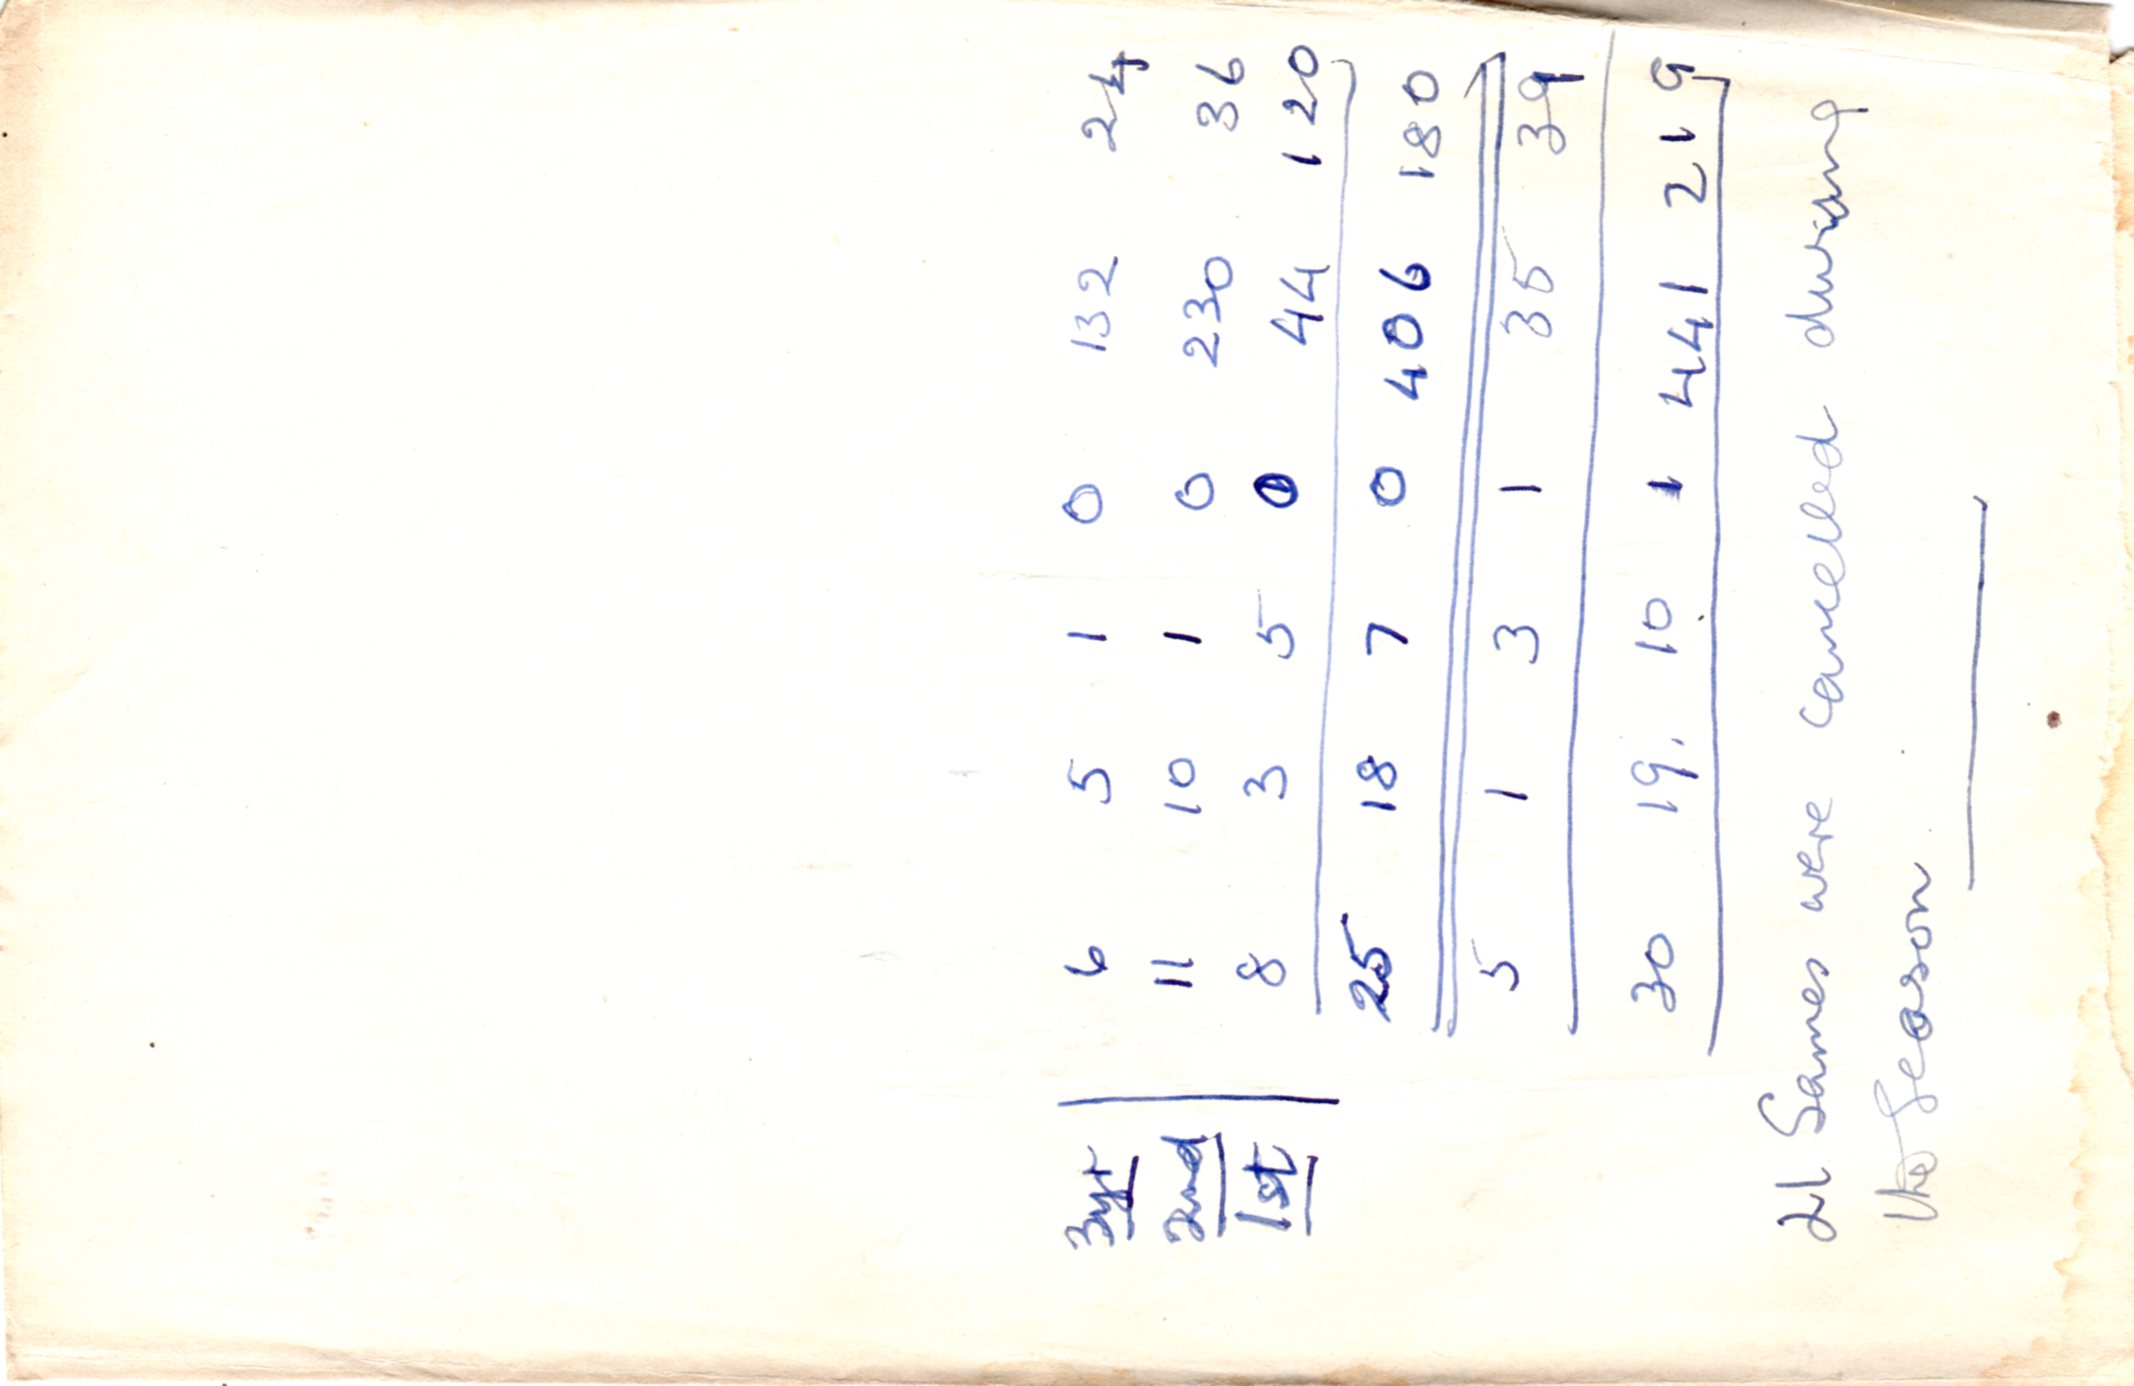 3yr 6 5 1 0 132 24
2nd 11 10 1 0 230 36
1st 8 3 5 0 44 120
25 18 7 0 406 180
5 1 3 1 35 39
30 19. 10 1 441 219
21 Games were cancelled during
the Season